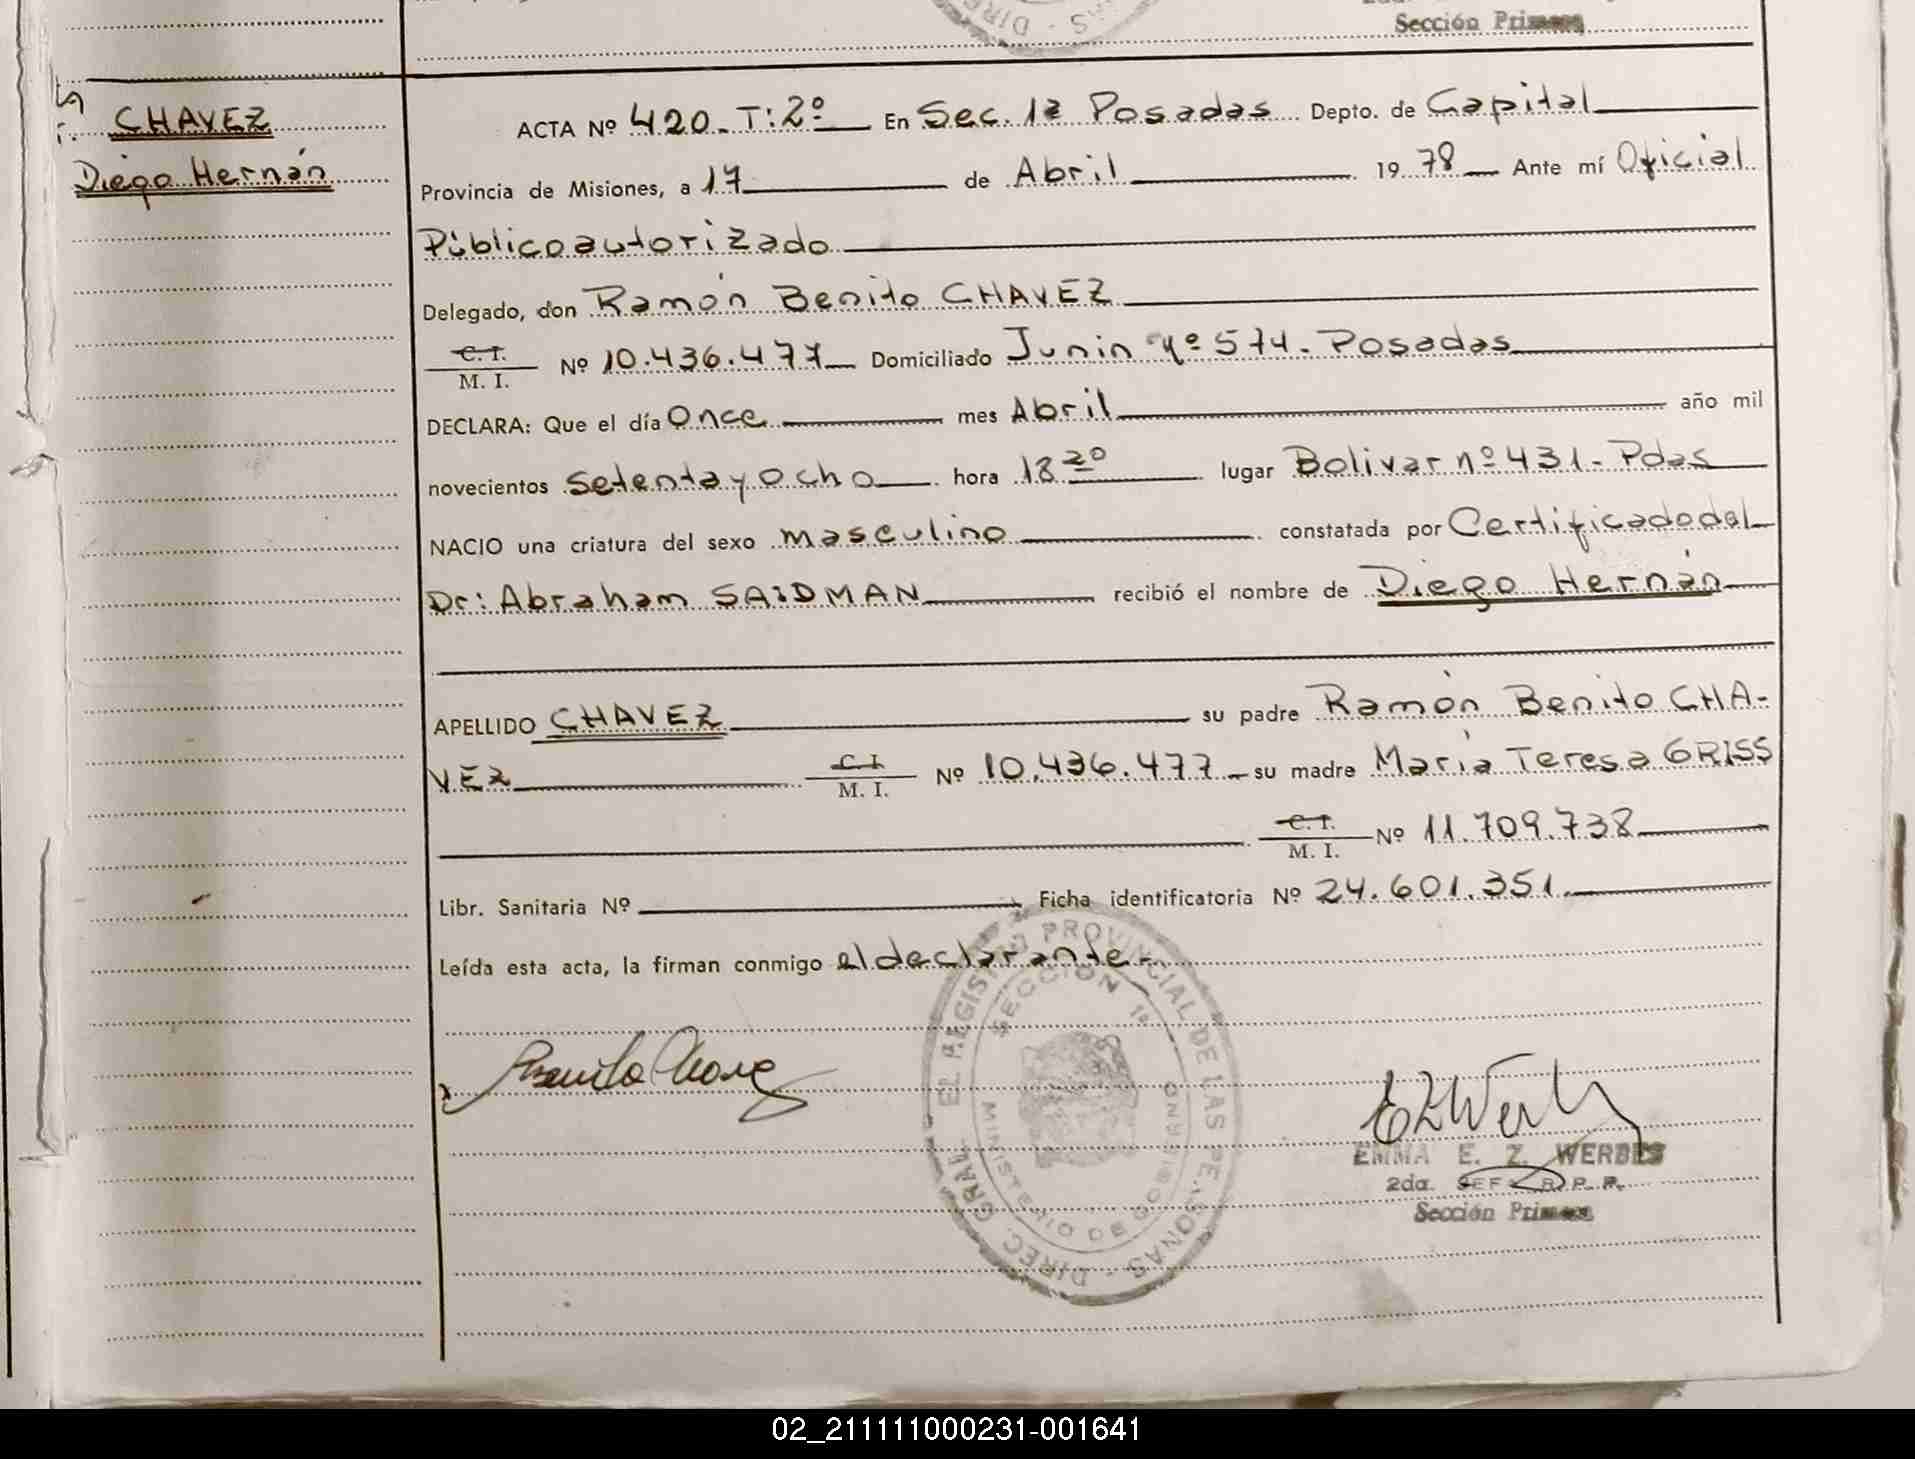 Sección Primera
CHAVEZ
Diego Hernán
ACTA Nº 420. T: 2º En Sec. 1a Posadas Depto. de Capital
Provincia de Misiones, a 17 de Abril 19 78 Ante mí Oficial
Público autorizado
Delegado, don Ramón Benito CHAVEZ
C. I.
M. I. Nº 10.436.477 Domiciliado Junin nº 574. Posadas
DECLARA: Que el día Once mes Abril año mil
novecientos setenta y ocho hora 18 20 lugar Bolivar nº 431. Pdas
NACIO una criatura del sexo masculino constatada por Certificado del
Dr: Abraham SAIDMAN recibió el nombre de Diego Hernán
APELLIDO CHAVEZ su padre Ramón Benito CHA-
VEZ C. I. M. I. Nº 10.436.477 su madre María Teresa GRISS
C. I. M. I. Nº 11.709.738
Libr. Sanitaria Nº Ficha identificatoria Nº 24.601.351
Leída esta acta, la firman conmigo el declarante.
DIREC. GRAL. EL REGISTRO PROVINCIAL DE LAS PERSONAS
SECCION 1ª
MINISTERIO DE GOBIERNO
EMMA E. Z. WERBES
2da. JEF R. P. P.
Sección Primera
02_211111000231-001641